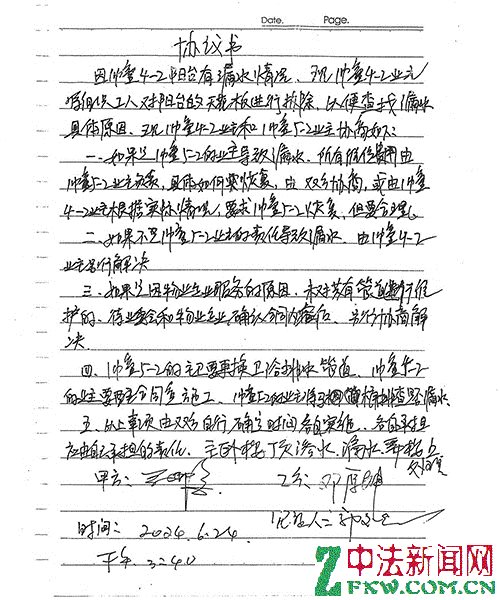 Date. Page.
协议书
因1幢4-2阳台有漏水情况,现1幢4-2业主
组织工人对阳台的天棚板进行拆除,以便查找漏水
具体原因。现1幢4-2业主和1幢5-2业主协商如下:
一、如果是1幢5-2的业主导致漏水,所有 由
1幢5-2业主负责,具体如何恢复,由双方协商,或由1幢
4-2业主根据实际情况,要求1幢5-2恢复,但要合理。
二、如果不是1幢5-2业主的责任导致漏水,由1幢4-2
业主自行解决
三、如果是因物业企业服务的原因,未对共有管道进行维
护的,待业委会和物业企业确认 后,另行协商解
决。
四、1幢5-2的主卫要更换卫浴排水管道,1幢4-2
的业主要 施工,1幢5-2的业主 排查是否漏水
五、以上事项由双方自行确定时间,各自实施,各自承担
应由自己承担的责任。主卧楼顶渗水、滴水
甲方: 乙方:
时间:2024.6.24 记证人:
下午 3:40
中法新闻网
ZFKW.COM.CN